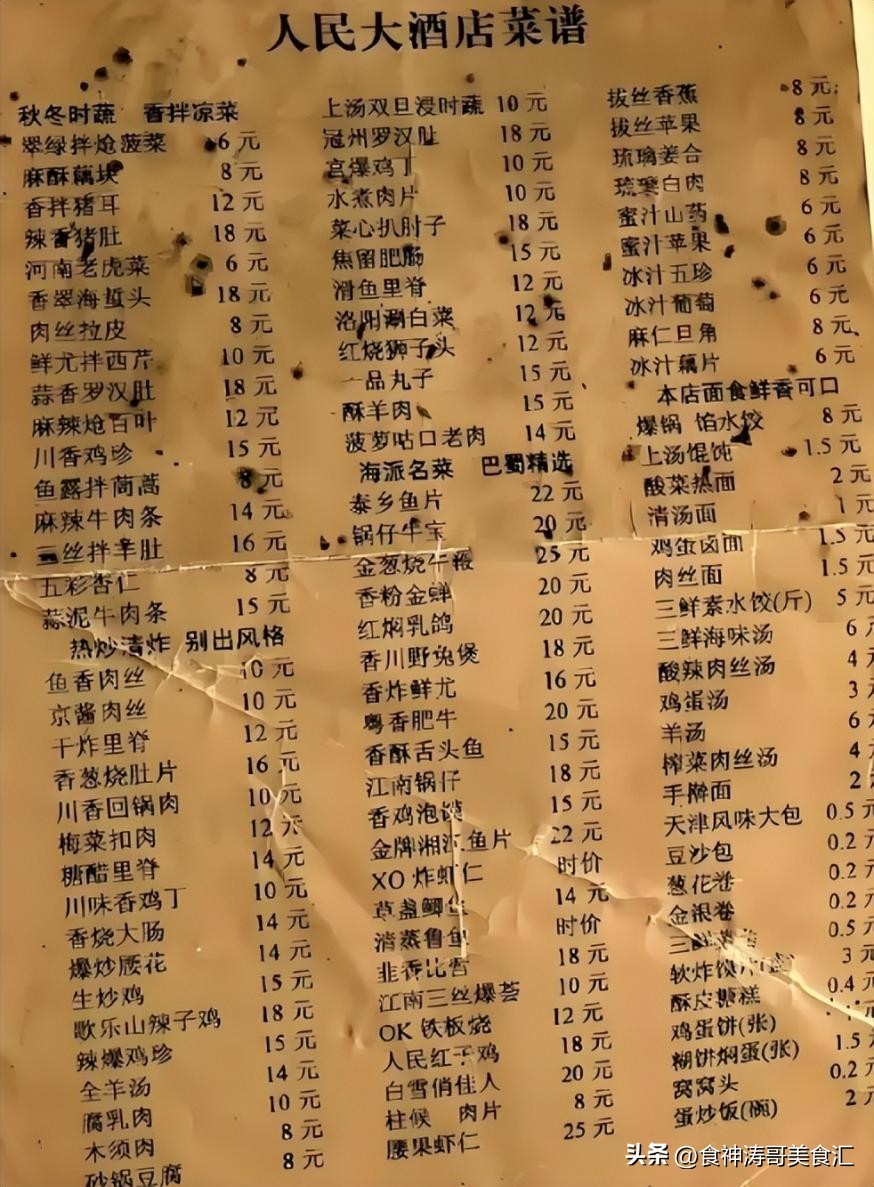 人民大酒店菜谱
秋冬时蔬 香拌凉菜
翠绿拌炝菠菜 6元
麻酥藕块 8元
香拌猪耳 12元
辣香猪肚 18元
河南老虎菜 6元
香翠海蜇头 18元
肉丝拉皮 8元
鲜尤拌西芹 10元
蒜香罗汉肚 18元
麻辣炝百叶 12元
川香鸡珍 15元
鱼露拌茼蒿 8元
麻辣牛肉条 14元
三丝拌羊肚 16元
五彩杏仁 8元
蒜泥牛肉条 15元
热炒清炸 别出风格
鱼香肉丝 10元
京酱肉丝 10元
干炸里脊 12元
香葱烧肚片 16元
川香回锅肉 10元
梅菜扣肉 12元
糖醋里脊 14元
川味香鸡丁 10元
香烧大肠 14元
爆炒腰花 14元
生炒鸡 15元
歌乐山辣子鸡 18元
辣爆鸡珍 15元
全羊汤 14元
腐乳肉 10元
木须肉 8元
砂锅豆腐 8元
上汤双旦浸时蔬 10元
冠州罗汉肚 18元
宫爆鸡丁 10元
水煮肉片 10元
菜心扒肘子 18元
焦留肥肠 15元
滑鱼里脊 12元
洛阳涮白菜 12元
红烧狮子头 12元
一品丸子 15元
酥羊肉 15元
菠萝咕口老肉 14元
海派名菜 巴蜀精选
泰乡鱼片 22元
锅仔牛宝 20元
金葱烧牛鞭 25元
香粉金蝉 20元
红焖乳鸽 20元
香川野兔煲 18元
香炸鲜尤 16元
粤香肥牛 20元
香酥舌头鱼 15元
江南锅仔 18元
香鸡泡馍 15元
金牌湘江鱼片 22元
XO炸虾仁 时价
草盏鲫鱼 14元
清蒸鲁鱼 时价
韭香比管 18元
江南三丝爆荟 10元
OK铁板烧 12元
人民红子鸡 18元
白雪俏佳人 20元
柱候 肉片 8元
腰果虾仁 25元
拔丝香蕉 8元
拔丝苹果 8元
琉璃姜合 8元
琉璃白肉 8元
蜜汁山药 6元
蜜汁苹果 6元
冰汁五珍 6元
冰汁葡萄 6元
麻仁旦角 8元
冰汁藕片 6元
本店面食鲜香可口
爆锅 馅水饺 8元
上汤馄饨 1.5元
酸菜热面 2元
清汤面 1元
鸡蛋卤面 1.5元
肉丝面 1.5元
三鲜素水饺(斤) 5元
三鲜海味汤 6元
酸辣肉丝汤 4元
鸡蛋汤 3元
羊汤 6元
榨菜肉丝汤 4元
手擀面 2
天津风味大包 0.5元
豆沙包 0.2元
葱花卷 0.2元
金银卷 0.2元
三鲜 0.5元
软炸馍片 3元
酥皮糖糕 0.4元
鸡蛋饼(张)
糊饼焖蛋(张) 1.5元
窝窝头 0.2元
蛋炒饭(碗) 2元
头条 @食神涛哥美食汇